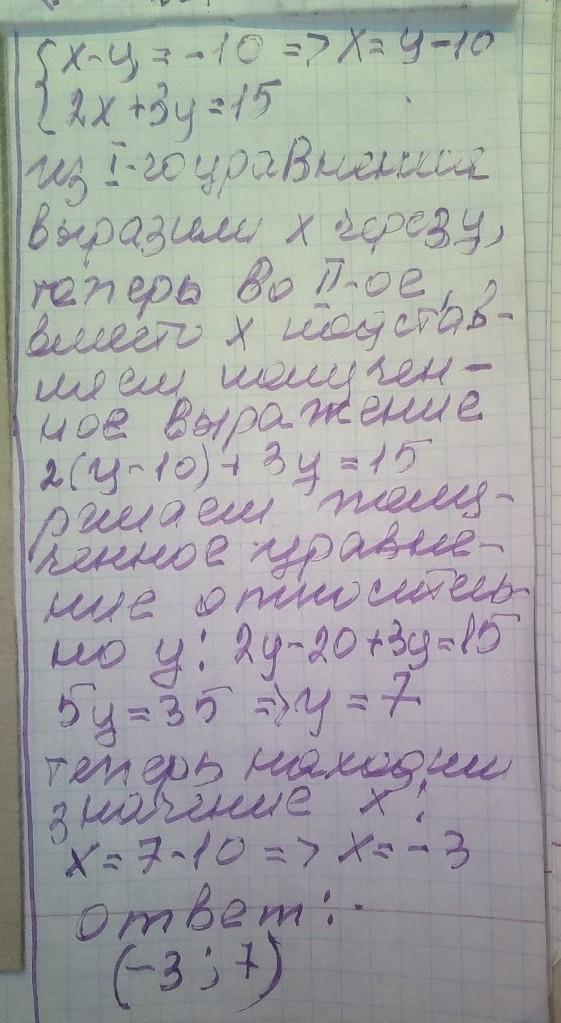 { x-y = -10 => x = y-10
{ 2x+3y=15
из I-го уравнения
выразили x через y,
теперь во II-ое,
вместо x подстав-
ляем получен-
ное выражение
2(y-10)+3y=15
решаем полу-
ченное уравне-
ние относитель-
но y: 2y-20+3y=15
5y=35 => y=7
теперь находим
значение x:
x=7-10 => x=-3
ответ:
(-3; 7)